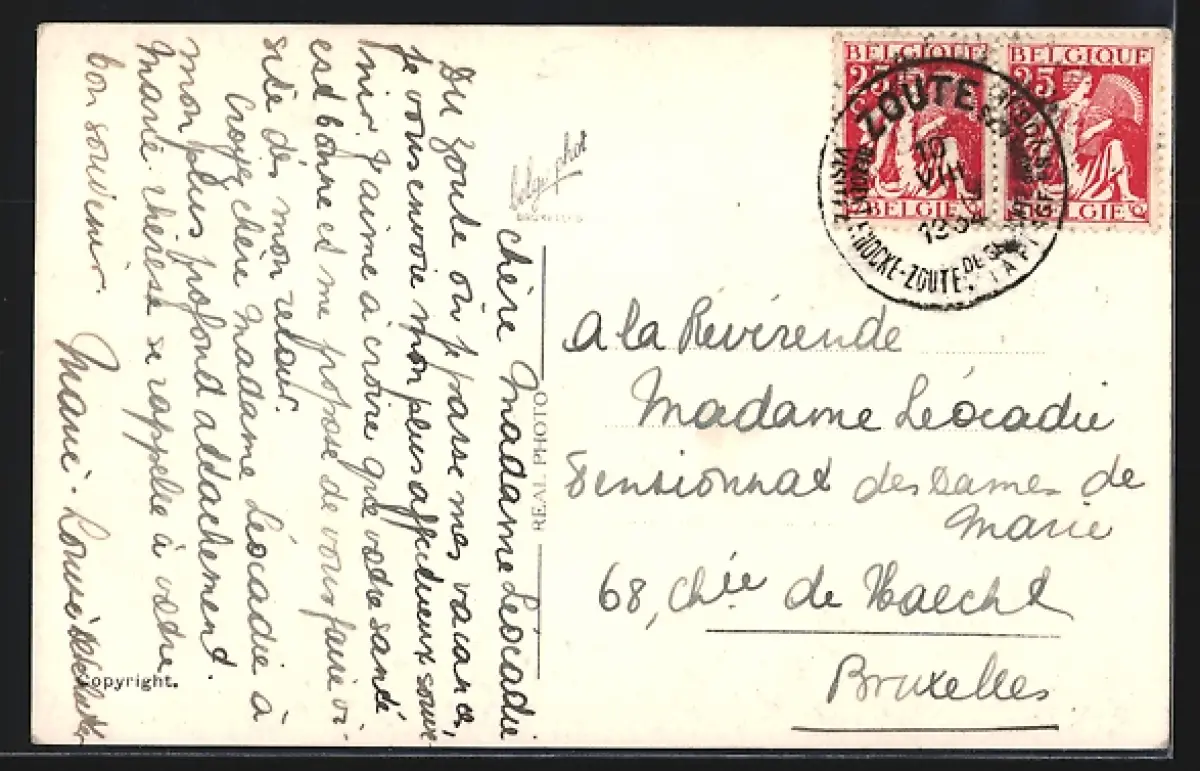 chère Madame Léocadie
Du Zoute où je passe mes vacances,
je vous envoie mon plus affectueux souve
nir. J'aime à croire que votre santé
est bonne et me propose de vous faire vi-
site dès mon retour.
Croyez chère Madame Léocadie à
mon plus profond attachement.
Marie Thérèse se rappelle à votre
bon souvenir.
Marie-Louise
belgo phot
BRUXELLES
REAL PHOTO
Copyright.
BELGIQUE
25
BELGIE
BELGIQUE
25
BELGIE
ZOUTE
10
VIII
1934
KNOCKE-ZOUTE
A la Révérende
Madame Léocadie
Pensionnat des Dames de
Marie
68, Chée de Haecht
Bruxelles